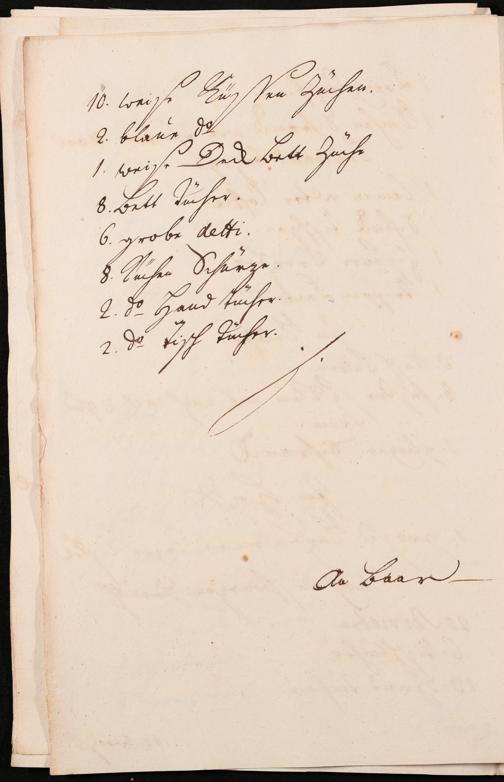 10. weiße Küssen Züchen.
2. blaue do
1. weiße Deck Bett Züche
8. Bett tücher.
6. grobe detti.
8. Küchen Schürze.
2. do Hand tücher.
2. do tisch tücher.
An Baar